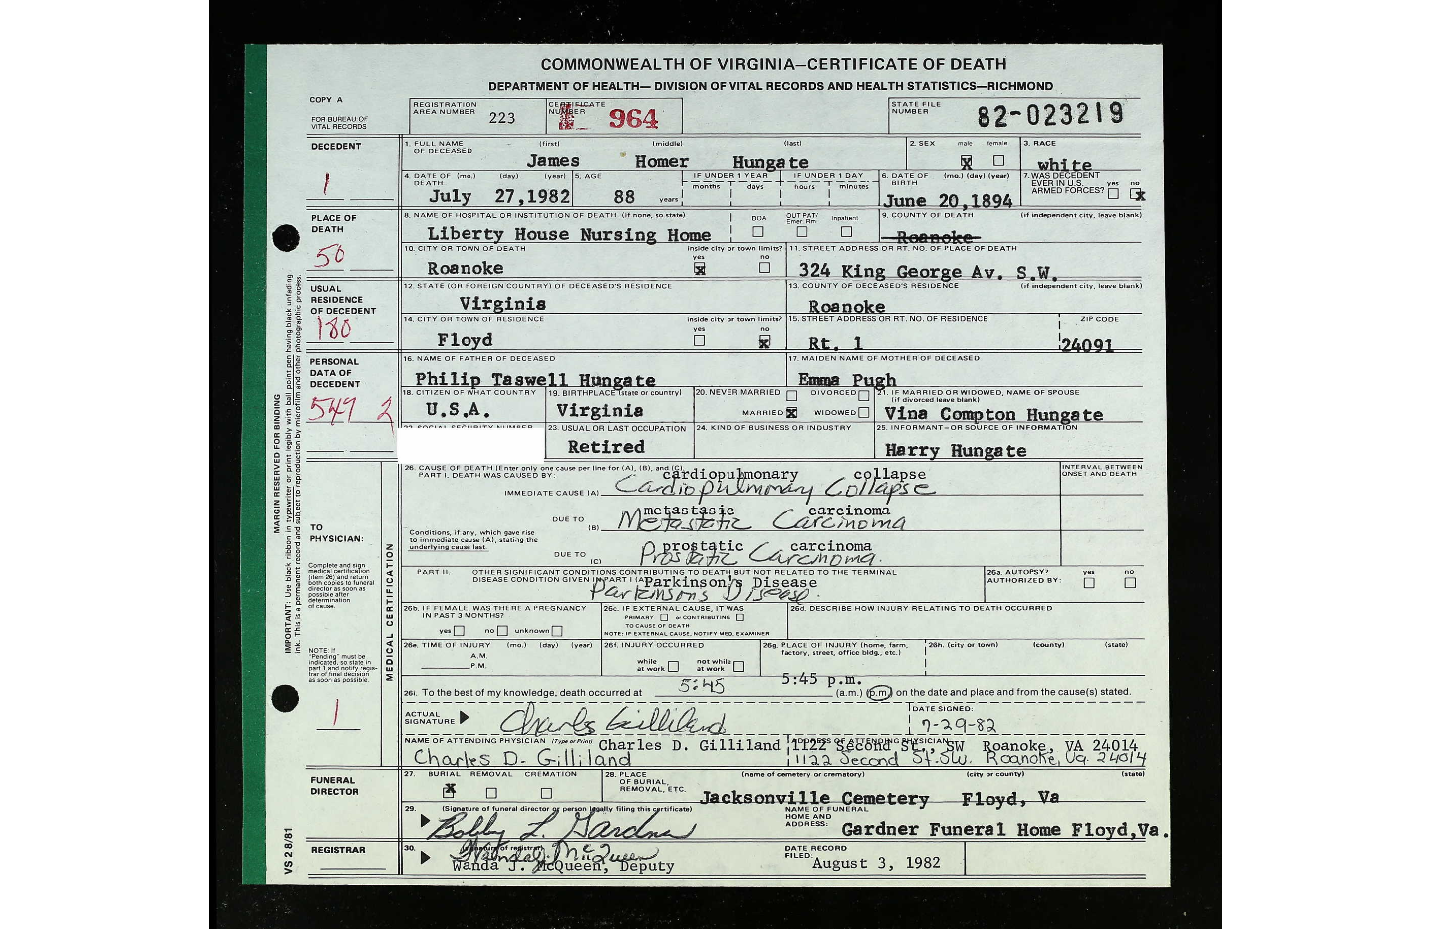 COMMONWEALTH OF VIRGINIA—CERTIFICATE OF DEATH
DEPARTMENT OF HEALTH— DIVISION OF VITAL RECORDS AND HEALTH STATISTICS—RICHMOND
COPY A
FOR BUREAU OF VITAL RECORDS
REGISTRATION AREA NUMBER 223
CERTIFICATE NUMBER 964
STATE FILE NUMBER 82-023219
DECEDENT
1. FULL NAME OF DECEASED (first) (middle) (last)
James Homer Hungate
2. SEX male female
3. RACE white
4. DATE OF DEATH (mo.) (day) (year) July 27,1982
5. AGE 88 years
IF UNDER 1 YEAR months days
IF UNDER 1 DAY hours minutes
6. DATE OF BIRTH (mo.) (day) (year) June 20,1894
7. WAS DECEDENT EVER IN U.S. ARMED FORCES? yes no
1
PLACE OF DEATH
50
8. NAME OF HOSPITAL OR INSTITUTION OF DEATH (if none, so state)
Liberty House Nursing Home
DOA OUT PAT/ Emer. Rm Inpatient
9. COUNTY OF DEATH (if independent city, leave blank)
Roanoke
10. CITY OR TOWN OF DEATH inside city or town limits? yes no
Roanoke
11. STREET ADDRESS OR RT. NO. OF PLACE OF DEATH
324 King George Av. S.W.
USUAL RESIDENCE OF DECEDENT
180
12. STATE (OR FOREIGN COUNTRY) OF DECEASED'S RESIDENCE
Virginia
13. COUNTY OF DECEASED'S RESIDENCE (if independent city, leave blank)
Roanoke
14. CITY OR TOWN OF RESIDENCE inside city or town limits? yes no
Floyd
15. STREET ADDRESS OR RT. NO. OF RESIDENCE ZIP CODE
Rt. 1 24091
PERSONAL DATA OF DECEDENT
549 2
16. NAME OF FATHER OF DECEASED
Philip Taswell Hungate
17. MAIDEN NAME OF MOTHER OF DECEASED
Emma Pugh
18. CITIZEN OF WHAT COUNTRY
U.S.A.
19. BIRTHPLACE (state or country)
Virginia
20. NEVER MARRIED DIVORCED
MARRIED WIDOWED
21. IF MARRIED OR WIDOWED, NAME OF SPOUSE (if divorced leave blank)
Vina Compton Hungate
23. USUAL OR LAST OCCUPATION
Retired
24. KIND OF BUSINESS OR INDUSTRY
25. INFORMANT—OR SOURCE OF INFORMATION
Harry Hungate
MARGIN RESERVED FOR BINDING
IMPORTANT: Use black ribbon in typewriter or print legibly with ball point pen having black unfading ink. This is a permanent record and subject to reproduction by microfilm and other photographic process.
MEDICAL CERTIFICATION
TO PHYSICIAN:
Complete and sign medical certification (item 26) and return both copies to funeral director as soon as possible after determination of cause.
NOTE: If "Pending" must be indicated, so state in part 1 and notify registrar of final decision as soon as possible.
1
26. CAUSE OF DEATH (Enter only one cause per line for (A), (B), and (C).
PART I. DEATH WAS CAUSED BY: cardiopulmonary collapse
IMMEDIATE CAUSE (A) Cardiopulmonary Collapse
INTERVAL BETWEEN ONSET AND DEATH
metastasic carcinoma
DUE TO (B) Metastatic Carcinoma
Conditions, if any, which gave rise to immediate cause (A), stating the underlying cause last.
prostatic carcinoma
DUE TO (C) Prostatic Carcinoma.
PART II. OTHER SIGNIFICANT CONDITIONS CONTRIBUTING TO DEATH BUT NOT RELATED TO THE TERMINAL DISEASE CONDITION GIVEN IN PART I (A)
Parkinson's Disease
Parkinsons Disease.
26a. AUTOPSY? AUTHORIZED BY: yes no
26b. IF FEMALE WAS THERE A PREGNANCY IN PAST 3 MONTHS?
yes no unknown
26c. IF EXTERNAL CAUSE, IT WAS
PRIMARY or CONTRIBUTING
TO CAUSE OF DEATH
NOTE: IF EXTERNAL CAUSE, NOTIFY MED. EXAMINER
26d. DESCRIBE HOW INJURY RELATING TO DEATH OCCURRED
26e. TIME OF INJURY (mo.) (day) (year)
A.M.
P.M.
26f. INJURY OCCURRED
while at work not while at work
26g. PLACE OF INJURY (home, farm, factory, street, office bldg., etc.)
26h. (city or town) (county) (state)
5:45 p.m.
26i. To the best of my knowledge, death occurred at 5:45 (a.m.) (p.m.) on the date and place and from the cause(s) stated.
ACTUAL SIGNATURE Charles Gilliland
DATE SIGNED: 7-29-82
NAME OF ATTENDING PHYSICIAN (Type or Print) Charles D. Gilliland
Charles D. Gilliland
ADDRESS OF ATTENDING PHYSICIAN
1122 Second St., SW Roanoke, VA 24014
1122 Second St. SW. Roanoke, Va. 24014
FUNERAL DIRECTOR
27. BURIAL REMOVAL CREMATION
28. PLACE OF BURIAL, REMOVAL, ETC. (name of cemetery or crematory) (city or county) (state)
Jacksonville Cemetery Floyd, Va
29. (Signature of funeral director or person legally filing this certificate)
Bobby L. Gardner
NAME OF FUNERAL HOME AND ADDRESS: Gardner Funeral Home Floyd,Va.
REGISTRAR
30. (signature of registrar)
Wanda J. McQueen
Wanda J. McQueen, Deputy
DATE RECORD FILED: August 3, 1982
VS 2 8/81